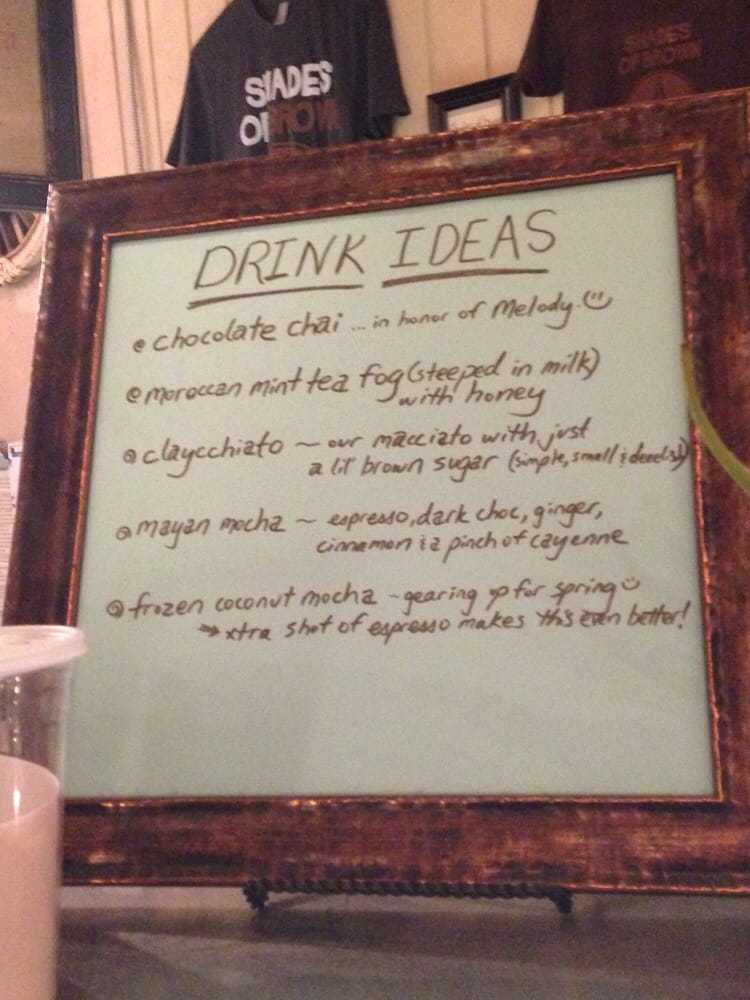 SHADES
OF BROWN
SHADES
OF BROWN
DRINK IDEAS
chocolate chai ... in honor of Melody.
moroccan mint tea fog (steeped in milk)
with honey
claycchiato ~ our macciato with just
a lil' brown sugar (simple, small &
mayan mocha ~ espresso, dark choc, ginger,
cinnamon & a pinch of cayenne
frozen coconut mocha - gearing up for spring
→ xtra shot of espresso makes this even better!